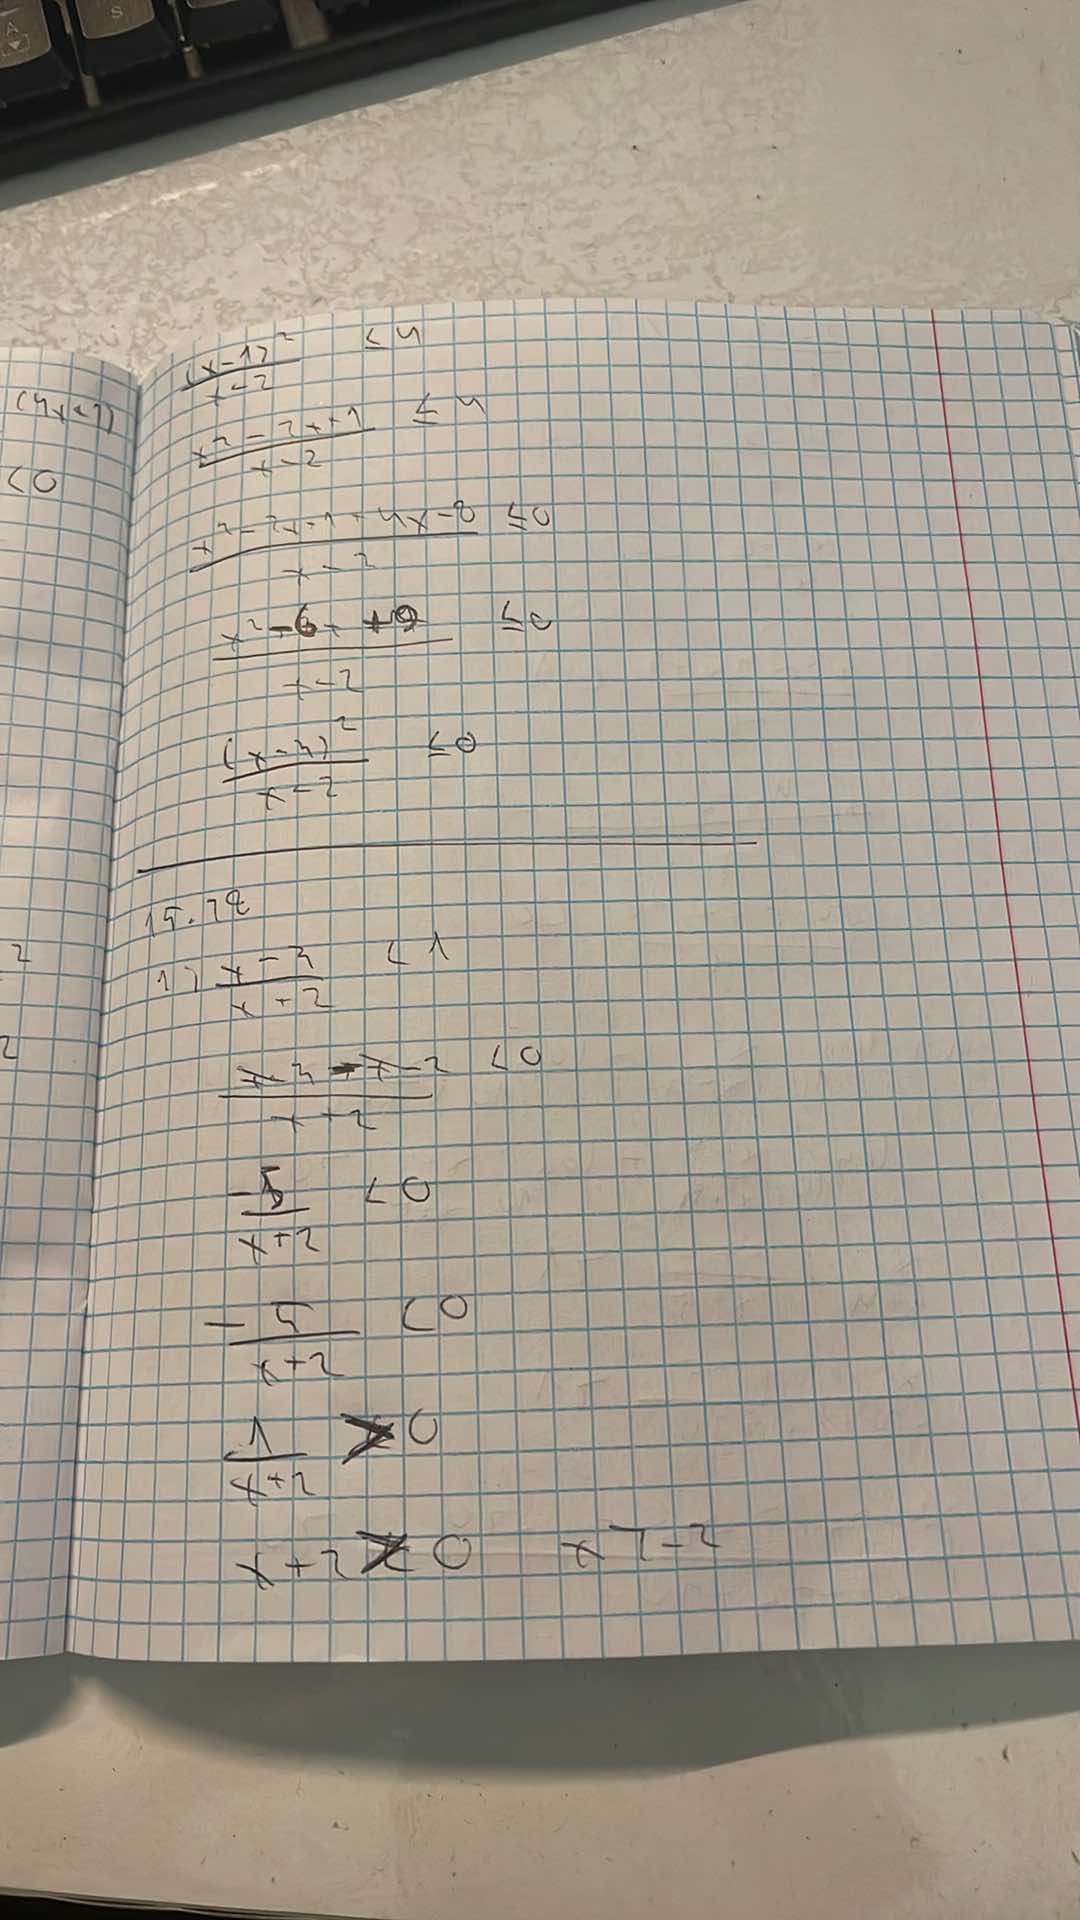 A
S
(4x+1)
<0
2
2
(x-1)² / x-2 ≤ 4
x²-2x+1 / x-2 ≤ 4
x²-2x+1-4x-8 / x-2 ≤0
x²-6x+9 / x-2 ≤0
(x-3)² / x-2 ≤0
15.
1) x-3 / x+2 <1
x-3-x-2 / x+2 <0
-5 / x+2 <0
- 5 / x+2 <0
1 / x+2 >0
x+2 > 0 x>-2